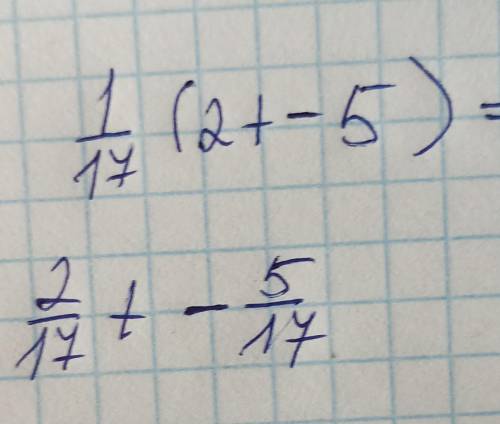 1/17 (2t - 5) =
2/17 t - 5/17